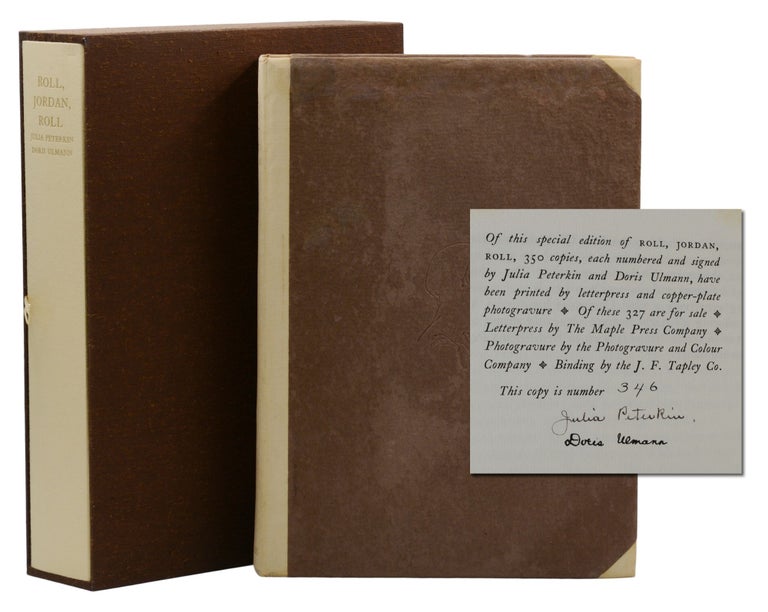 ROLL,
JORDAN,
ROLL
JULIA PETERKIN
DORIS ULMANN
Of this special edition of ROLL, JORDAN,
ROLL, 350 copies, each numbered and signed
by Julia Peterkin and Doris Ulmann, have
been printed by letterpress and copper-plate
photogravure ❖ Of these 327 are for sale ❖
Letterpress by The Maple Press Company ❖
Photogravure by the Photogravure and Colour
Company ❖ Binding by the J. F. Tapley Co.
This copy is number 346
Julia Peterkin.
Doris Ulmann